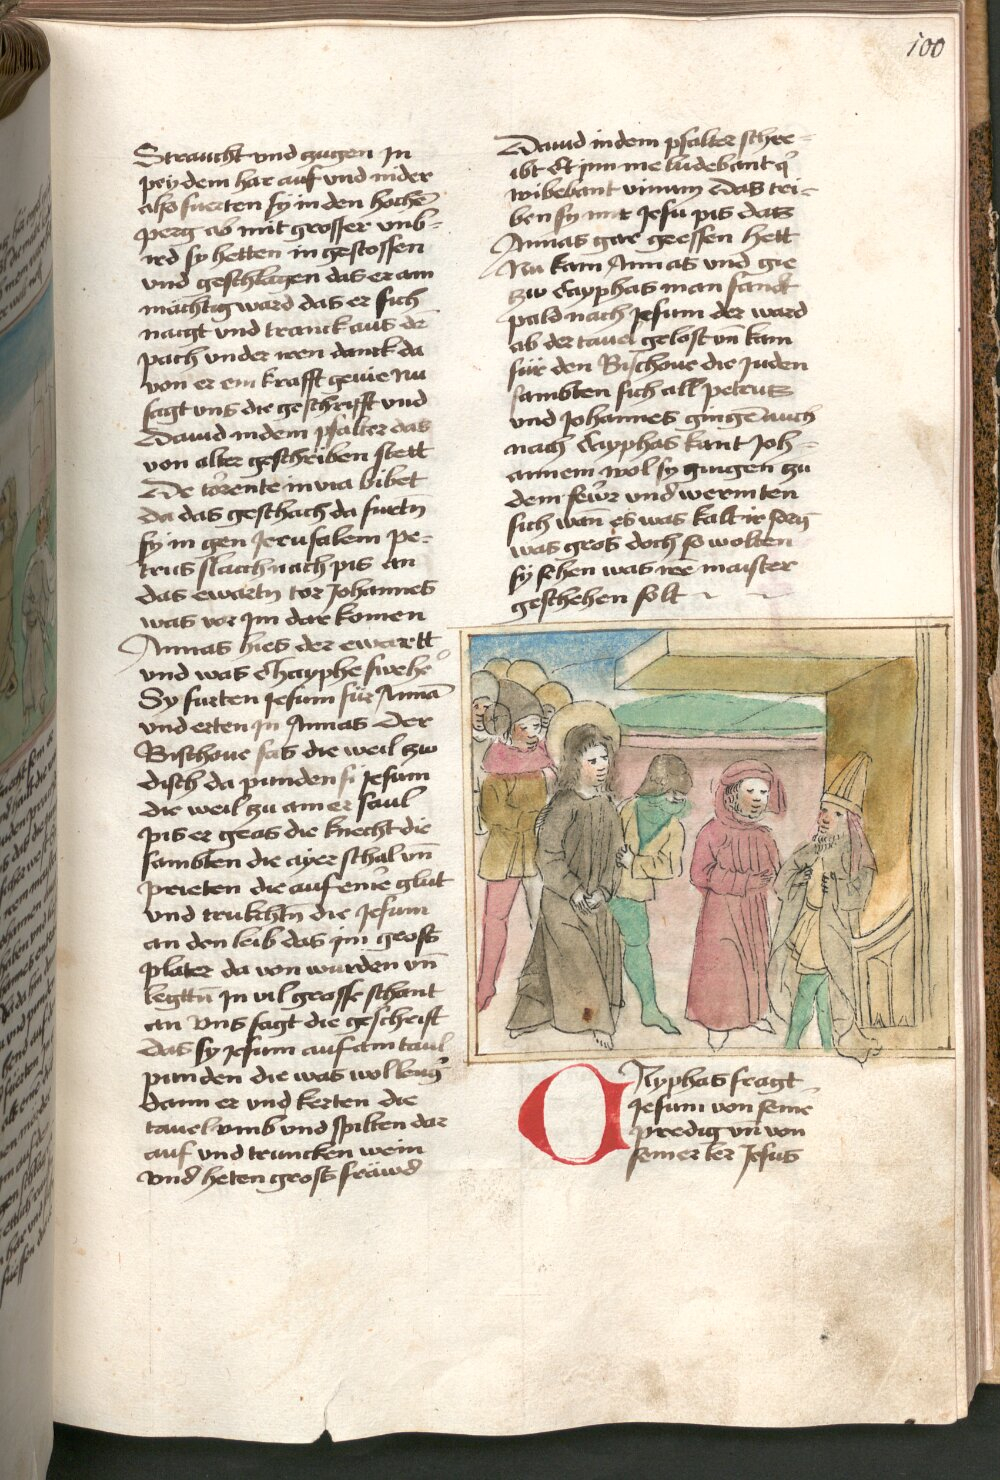 100
Straucht vnd zugen In
pey dem har auf vnd nider
also fuerten sy in den hochē
perg ab mit grosser vnb-
ird sy hetten in gestossen
vnd geschlagen das er am
mächtig ward das er sich
naigt vnd tranck aus dē
pach vnder iren danck da
von er ein krafft gevie Nu
sagt vns die geschrifft vnd
Dauid in dem psalter das
von alter geschriben stett
De torente in via bibet
da das geschach da furtn
sy in gen Jerusalem Pe-
trus slaich nach pis an
das ewartn tor Johannes
was vor Im dar komen
Annas hies der ewartt
vnd was Chayphe swehe
Sy furten Jesum für Anna
vnd erten In Annas Der
Bischoue sas die weil zw
disch da punden si Jesum
die weil zu ainer saul
pis er geas die knecht die
sambten die ayer schal vn̄
prieten die auf eine glut
vnd trukchtn die Jesum
an den leib das im gross
plater da von wurden vn̄
legttn̄ In vil grosse schant
an Vns sagt die geschrift
das sy Jesum auf ain taul
punden die was wol leng
dann er vnd kerten die
tauel vmb vnd spilten dar
auf vnd truncken wein
vnd heten gross fräwd
Dauid in dem psalter schre-
ibt Et jnn me ludebant q
wibebant vinum Das tri-
ben sy mit Jesu pis das
Annas gar geessen hett
Nu kam Annas vnd gie
zw Cayphas man sandt
pald nach Jesum der ward
ab der tauel gelost vn̄ kam
für den Bischoue die Juden
sambten sich all Petrus
vnd Johannes gingē auch
nach Cayphas kant Joh-
annem wol sy gingen zu
dem fewr vnd wermten
sich wan̄ es was kalt ir sorg
was gros doch so wolten
sy sehen was irr maister
geschehen solt
CAyphas fragt
Jesum von seine
predig vn̄ von
seiner ler Jesus